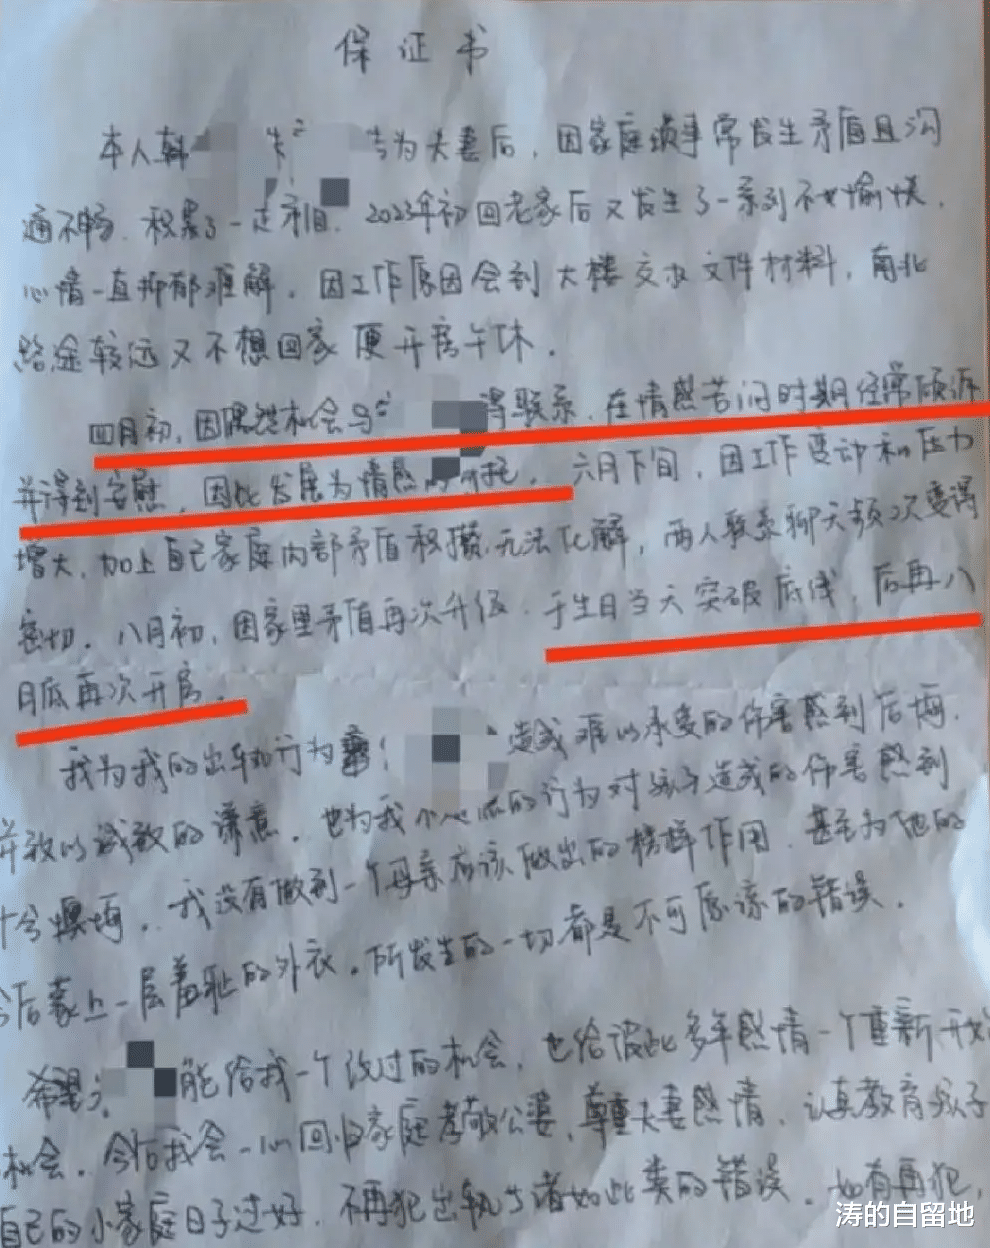 保证书
本人韩 为夫妻后,因家庭琐事常发生矛盾且沟
通不畅.积累了一定 2023年初回老家后又发生了一系列不愉快.
心情一直抑郁难解.因工作原因会到大楼交水文件材料,南北
路途较远又不想回家便开房午休.
四月初,因偶然机会与 得联系.在情感苦闷时期经常倾诉
并得到安慰,因此发展为情感的 托.六月下旬,因工作变动和压力
增大,加上自己家庭内部矛盾积攒无法化解,两人联系聊天频次变得
密切.八月初,因家里矛盾再次升级.于生日当天突破底线,后再八
月底再次开房.
我为我的出轨行为 造成难以承受的伤害感到后悔.
并致以诚致的谦意.也为我 的行为对孩子造成的伤害感到
十分懊悔..我没有做到一个母亲应该做出的榜样作用.甚至为他的
今后蒙上一层羞耻的外衣.所发生的一切都是不可原谅的错误.
希望 能给我一个改过的机会,也给彼此多年感情一个重新开始
机会.今后我会一心回归家庭孝敬公婆,尊重夫妻感情.认真教育孩子
自己的小家庭日子过好.不再犯出轨与诸如此类的错误.如有再犯,
涛的自留地